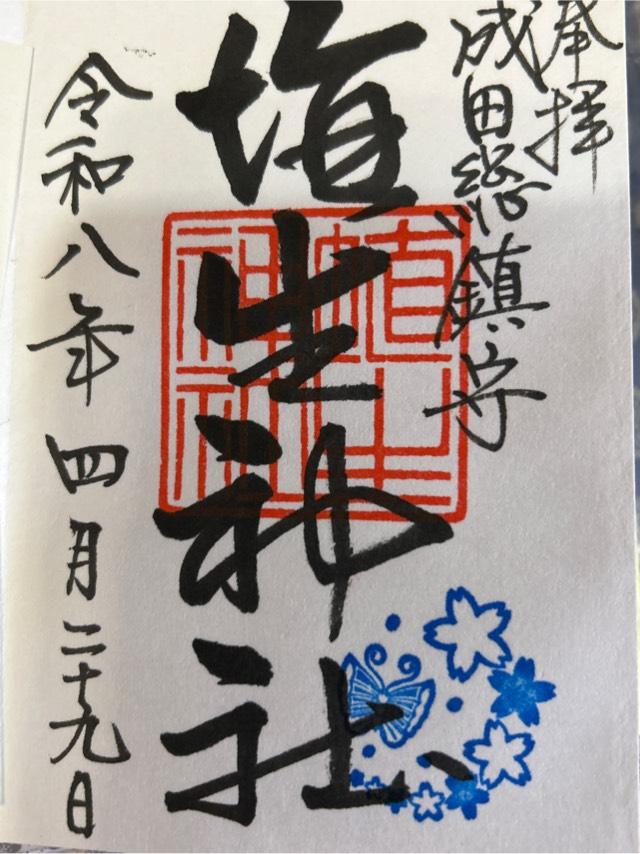 奉拝
成田総鎮守
埴生神社
埴生神社
令和八年四月二十九日